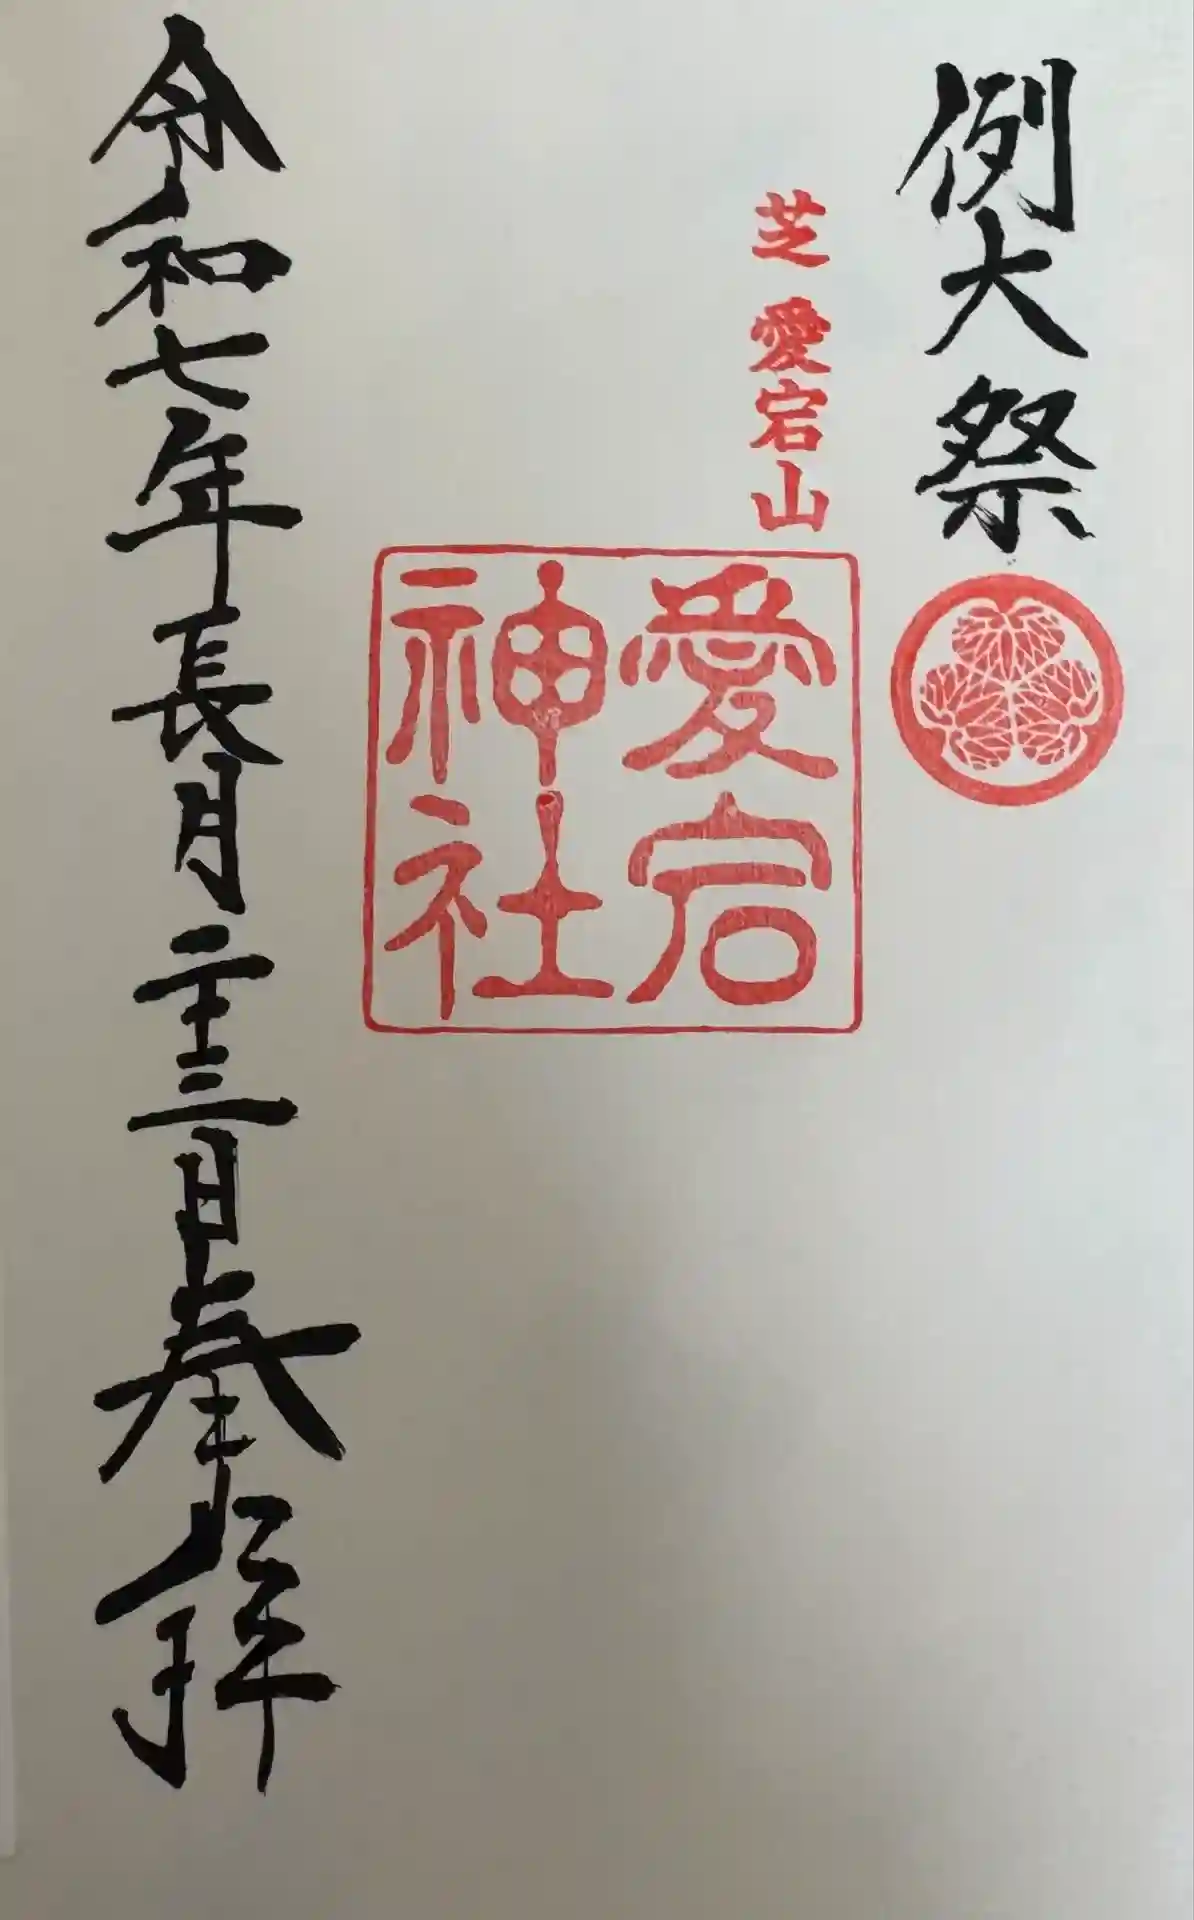 例大祭
芝 愛宕山
愛宕
神社
令和七年長月二十三日奉拝